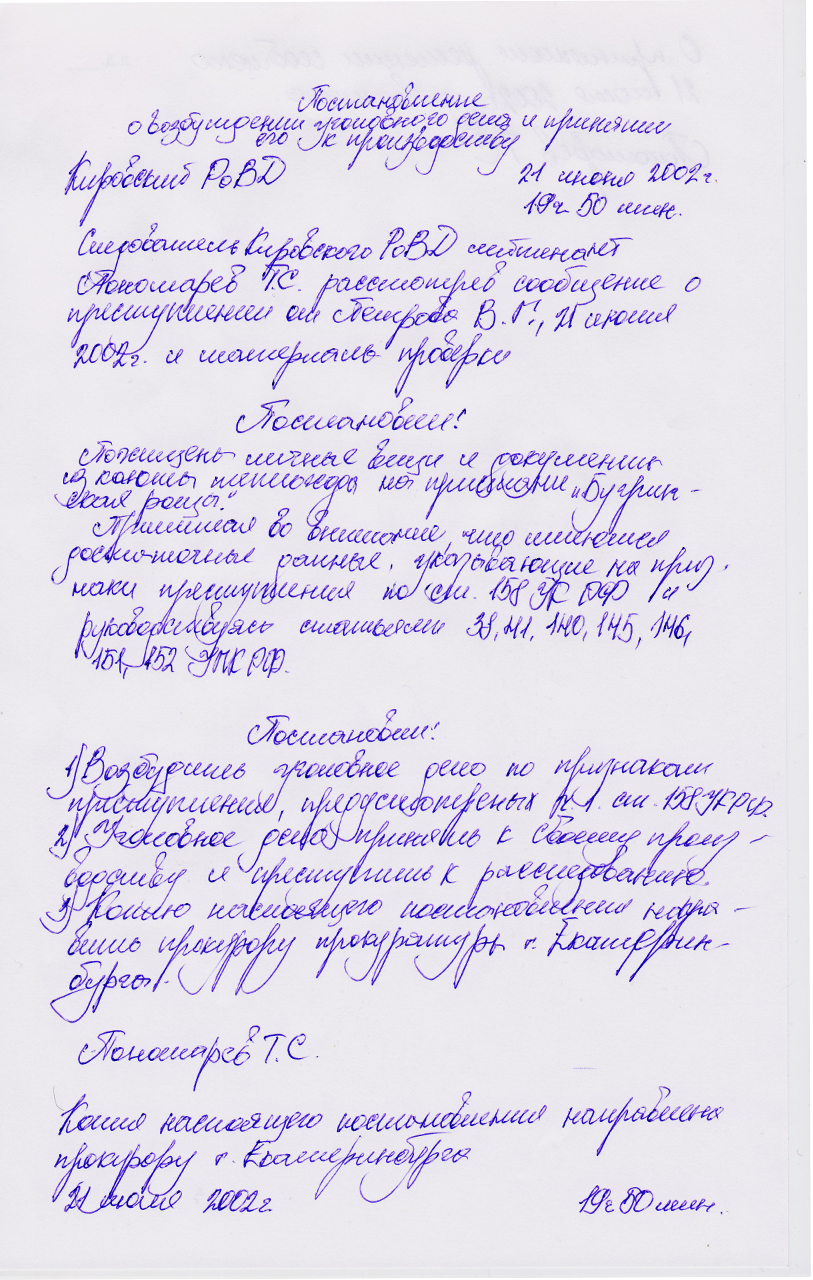 Постановление
о возбуждении уголовного дела и принятии
его к производству
Кировский РОВД 21 июня 2002г.
19ч 50 мин.
Следователь Кировского РОВД лейтенант
Пономарев Т.С. рассмотрев сообщение о
преступлении от Петрова В.Г., 21 июня
2002г. и материалы проверки
Постановил:
Похищены личные вещи и документы
из каюты теплохода на пристани "Бугрин-
ская роща."
Принимая во внимание, что имеются
достаточные данные, указывающие на приз-
наки преступления по ст. 158 УК РФ и
руководствуясь статьями 38, 41, 140, 145, 146,
151, 152 УПК РФ.
Постановил:
1) Возбудить уголовное дело по признакам
преступления, предусмотреных ч 1. ст. 158 УК РФ.
2) Уголовное дело принять к своему произ-
водству и преступить к расследованию.
3) Копию настоящего постановления напра-
вить прокурору прокуратуры г. Екатерин-
бурга.
Пономарев Т.С.
Копия настоящего постановления направлена
прокурору г. Екатеринбурга
21 июня 2002г. 19ч 50 мин.